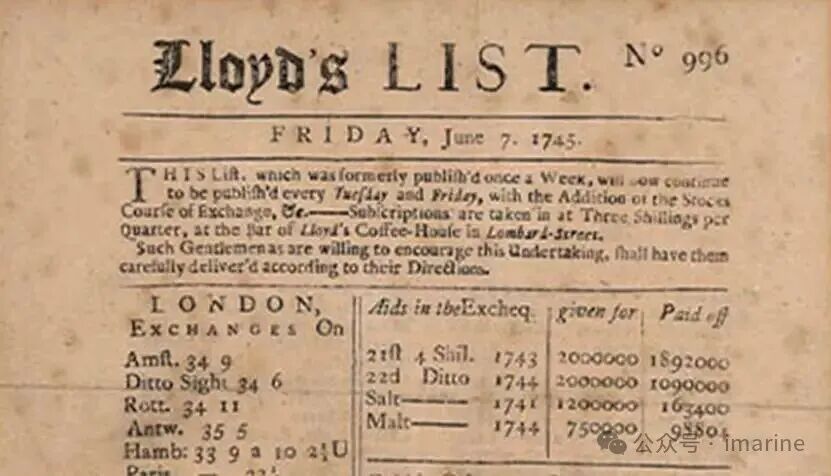 Lloyd's LIST. No 996
FRIDAY, June 7. 1745.
THIS List, which was formerly publish'd once a Week, will now continue
to be publish'd every Tuesday and Friday, with the Addition of the Stocks
Course of Exchange, &c.——Subscriptions are taken in at Three Shillings per
Quarter, at the Bar of Lloyd's Coffee-House in Lombard-Street.
Such Gentlemen as are willing to encourage this Undertaking, shall have them
carefully deliver'd according to their Directions.
LONDON,
EXCHANGES On
Amst. 34 9
Ditto Sight 34 6
Rott. 34 11
Antw. 35 5
Hamb: 33 9 a 10 2½U
Aids in the Excheq. given for Paid off
21st 4 Shil. 1743 2000000 1892000
22d Ditto 1744 2000000 1090000
Salt—— 1741 1200000 163400
Malt—— 1744 750000 98804
公众号 · imarine